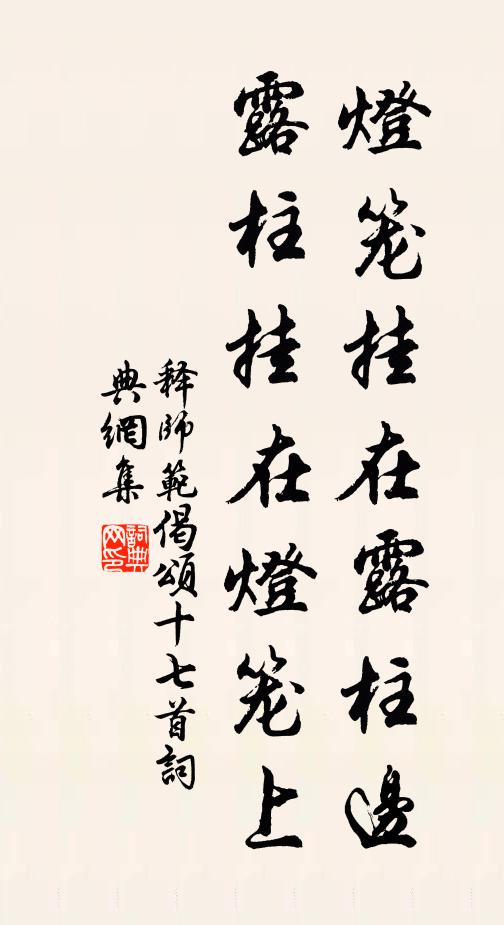 燈笼挂在露柱邊
露柱挂在燈笼上
释師範偈頌十七首詞
典網集
詞典网印